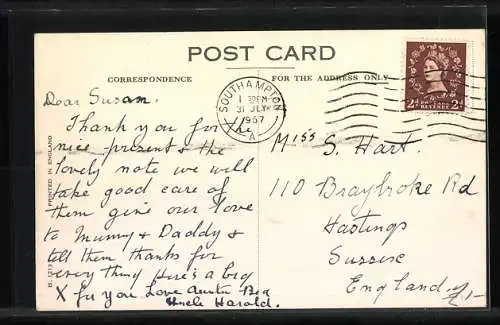 POST CARD
CORRESPONDENCE
FOR THE ADDRESS ONLY
Dear Susan.
Thank you for the
nice present & the
lovely note we will
take good care of
them give our love
to Mummy & Daddy &
tell them thanks for
everything Here's a big
X for you Love Auntie Bea
Uncle Harold.
PRINTED IN ENGLAND
SOUTHAMPTON
31 JLY
1957
A
2d 2d
Miss S. Hart.
110 Braybroke Rd
Hastings
Sussex
England.